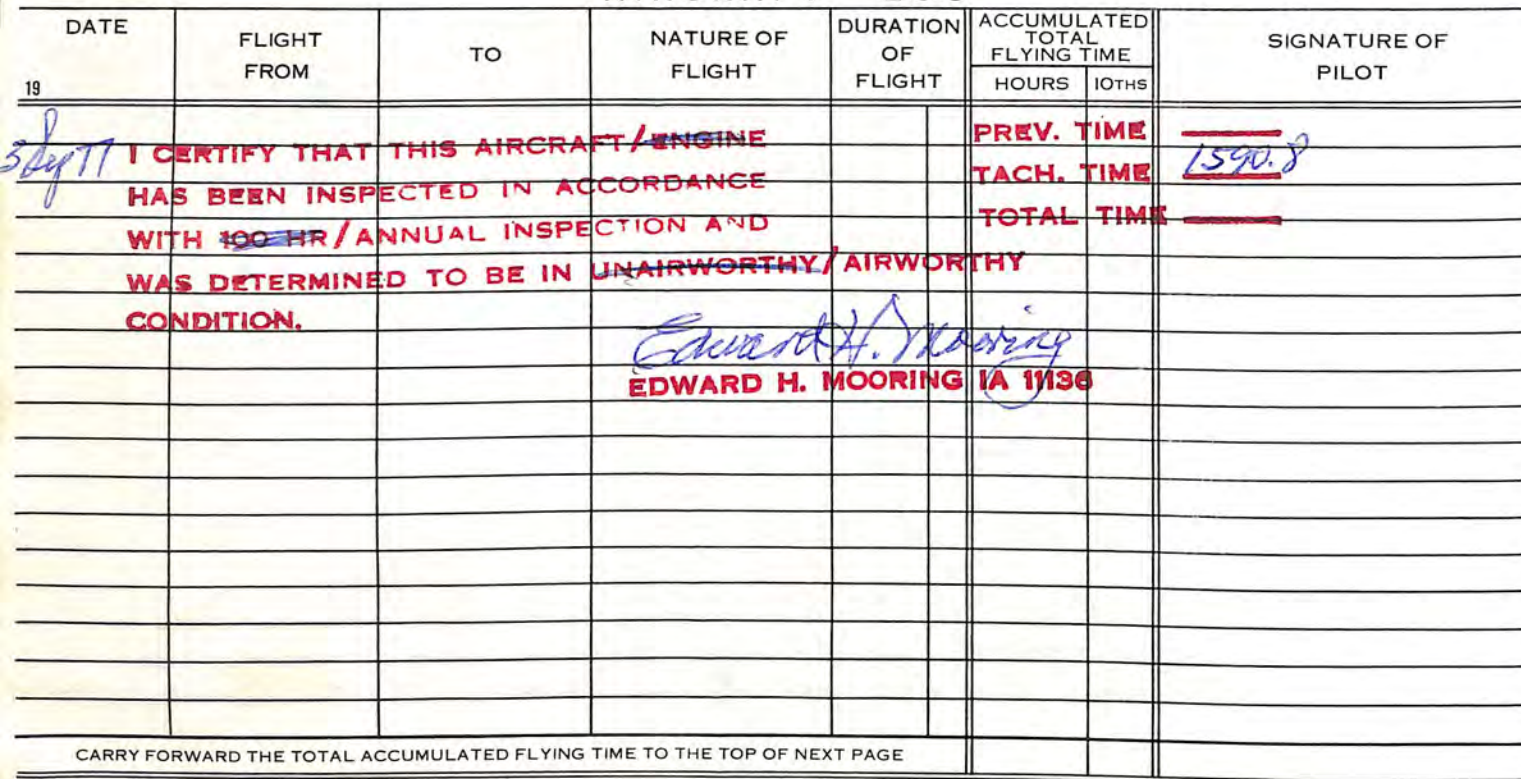 DATE
FLIGHT FROM
TO
NATURE OF FLIGHT
DURATION OF FLIGHT
ACCUMULATED TOTAL FLYING TIME
HOURS
10THS
SIGNATURE OF PILOT
19
3 Sep 77
I CERTIFY THAT THIS AIRCRAFT/ENGINE
HAS BEEN INSPECTED IN ACCORDANCE
WITH 100 HR/ANNUAL INSPECTION AND
WAS DETERMINED TO BE IN UNAIRWORTHY/AIRWORTHY
CONDITION.
PREV. TIME
TACH. TIME 1590.8
TOTAL TIME
Edward H. Mooring
EDWARD H. MOORING IA 11136
CARRY FORWARD THE TOTAL ACCUMULATED FLYING TIME TO THE TOP OF NEXT PAGE